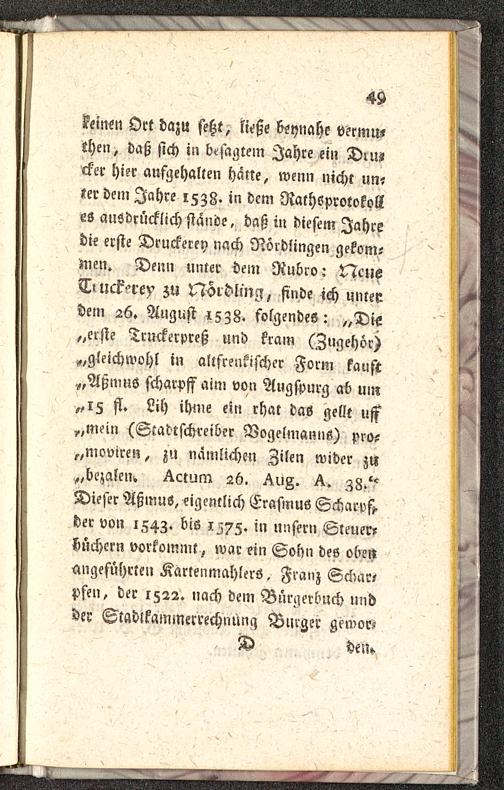 49
keinen Ort dazu setzt, ließe beynahe vermu⸗
then, daß sich in besagtem Jahre ein Dru⸗
cker hier aufgehalten hätte, wenn nicht un⸗
ter dem Jahre 1538. in dem Rathsprotokoll
es ausdrücklich stände, daß in diesem Jahre
die erste Druckerey nach Nördlingen gekom⸗
men. Denn unter dem Rubro: Neue
Truckerey zu Nördling, finde ich unter
dem 26. August 1538. folgendes: „Die
„erste Truckerpreß und kram (Zugehör)
„gleichwohl in altfrenkischer Form kauft
„Aßmus scharpff aim von Augspurg ab um
„15 fl. Lih ihme ein rhat das gellt uff
„mein (Stadtschreiber Vogelmanns) pro⸗
„moviren, zu nämlichen Zilen wider zu
„bezalen. Actum 26. Aug. A. 38.“
Dieser Aßmus, eigentlich Erasmus Scharpf,
der von 1543. bis 1575. in unsern Steuer⸗
büchern vorkommt, war ein Sohn des oben
angeführten Kartenmahlers, Franz Schar⸗
pfen, der 1522. nach dem Bürgerbuch und
der Stadtkammerrechnung Burger gewor⸗
D den.